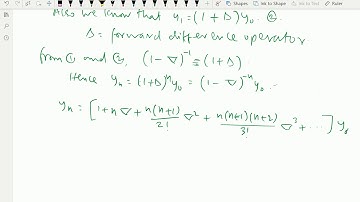 Shapes Ink to Shape
Also we know that y₁ = (1 + Δ) y₀. ②
Δ = forward difference operator
from ① and ②, (1 - ∇)⁻¹ ≅ (1 + Δ)
Hence yₙ = (1 + Δ)ⁿ y₀ = (1 - ∇)⁻ⁿ y₀.
yₙ = [1 + n ∇ + n(n+1)/2! ∇² + n(n+1)(n+2)/3! ∇³ + ...] y₀